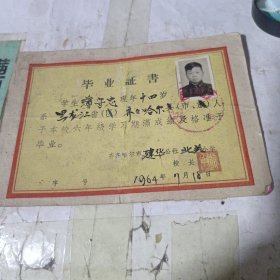 毕业证書
学生 现年十四岁
系黑龙江省(区)齐齐哈尔市(市、县)人
于本校六年级学习期满成绩及格准予
毕业。
齐齐哈尔市建华公社 小学
校长
1964年7月18日
字 号